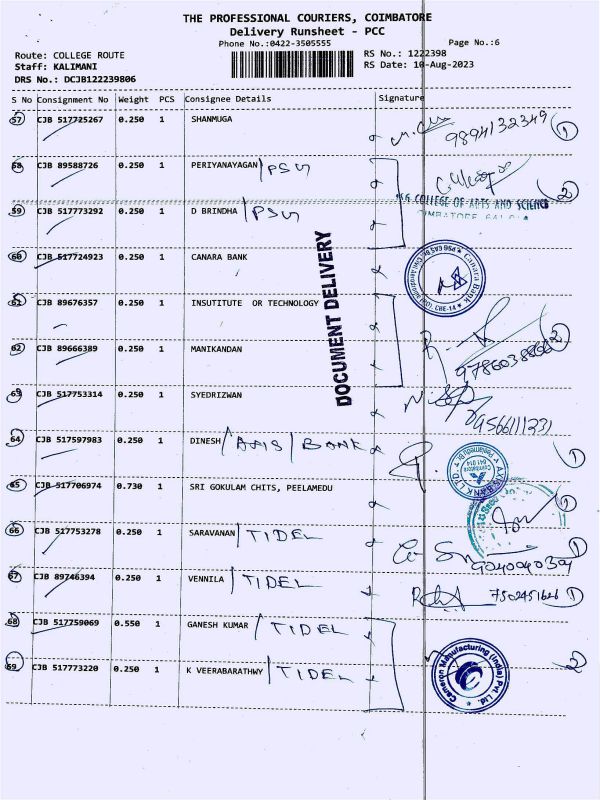 THE PROFESSIONAL COURIERS, COIMBATORE
Delivery Runsheet - PCC
Phone No.:0422-3505555
Page No.:6
Route: COLLEGE ROUTE
RS No.: 1222398
Staff: KALIMANI
RS Date: 10-Aug-2023
DRS No.: DCJB122239806
S No Consignment No Weight PCS Consignee Details Signature
57 CJB 517725267 0.250 1 SHANMUGA 9894132349 1
58 CJB 89588726 0.250 1 PERIYANAYAGAN 2
PSG COLLEGE OF ARTS AND SCIENCE
59 CJB 517773292 0.250 1 D BRINDHA
60 CJB 517724923 0.250 1 CANARA BANK
Canara Bank CBE-14
DOCUMENT DELIVERY
61 CJB 89676357 0.250 1 INSUTITUTE OR TECHNOLOGY 2
62 CJB 89666389 0.250 1 MANIKANDAN
63 CJB 517753314 0.250 1 SYEDRIZWAN
64 CJB 517597983 0.250 1 DINESH / AXIS / BANK 1
AXIS BANK LTD
Coimbatore 641 014
65 CJB 517706974 0.730 1 SRI GOKULAM CHITS, PEELAMEDU 1
66 CJB 517753278 0.250 1 SARAVANAN / TIDEL 1
67 CJB 89746394 0.250 1 VENNILA / TIDEL 7502451626 1
68 CJB 517759069 0.550 1 GANESH KUMAR / TIDEL
69 CJB 517773220 0.250 1 K VEERABARATHWY / TIDEL 2
Cameron Manufacturing (India) Pvt. Ltd.